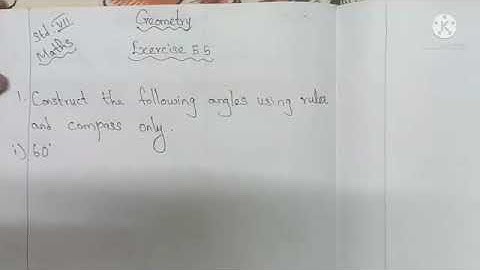 Std: VII
Maths
Geometry
Exercise 5.5
1. Construct the following angles using ruler
and compass only.
i) 60°